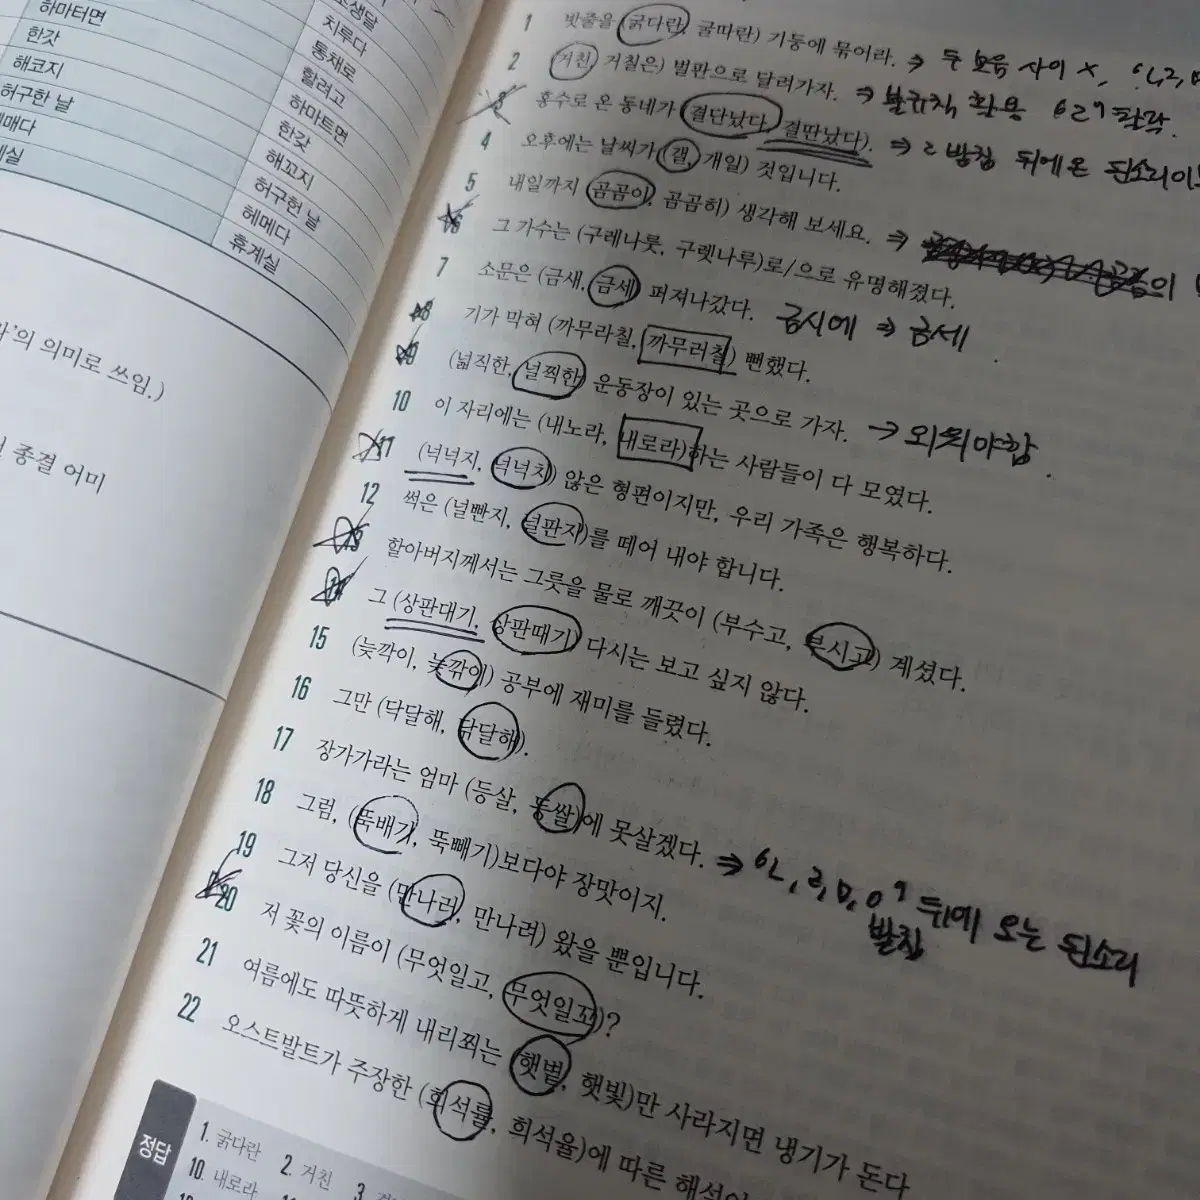 하마터면
한갓
해코지
허구한 날
치루다
통채로
할려고
하마트면
한갖
해꼬지
허구헌 날
헤메다
휴계실
의 의미로 쓰임.)
종결 어미
1 밧줄을 (굵다란, 굴따란) 기둥에 묶어라. ⇒ 두 모음 사이 X,
2 (거친, 거칠은) 벌판으로 달려가자. ⇒ 불규칙 활용 'ㄹ' 탈락.
3 홍수로 온 동네가 (결단났다, 결딴났다). ⇒ ㄹ 받침 뒤에 온 된소리이
4 오후에는 날씨가 (갤, 개일) 것입니다.
5 내일까지 (곰곰이, 곰곰히) 생각해 보세요. ⇒
6 그 가수는 (구레나룻, 구렛나루)로/으로 유명해졌다.
7 소문은 (금새, 금세) 퍼져나갔다. 금시에 ⇒ 금세
8 기가 막혀 (까무라칠, 까무러칠) 뻔했다.
9 (넓직한, 널찍한) 운동장이 있는 곳으로 가자. → 외워야함.
10 이 자리에는 (내노라, 내로라)하는 사람들이 다 모였다.
11 (넉넉지, 넉넉치) 않은 형편이지만, 우리 가족은 행복하다.
12 썩은 (널빤지, 널판지)를 떼어 내야 합니다.
13 할아버지께서는 그릇을 물로 깨끗이 (부수고, 부시고) 계셨다.
14 그 (상판대기, 상판때기) 다시는 보고 싶지 않다.
15 (늦깍이, 늦깎이) 공부에 재미를 들렸다.
16 그만 (닥달해, 닦달해).
17 장가가라는 엄마 (등살, 등쌀)에 못살겠다. ⇒ 'ㄴ, ㄹ, ㅁ, ㅇ' 받침 뒤에 오는 된소리
18 그럼, (뚝배기, 뚝빼기)보다야 장맛이지.
19 그저 당신을 (만나러, 만나려) 왔을 뿐입니다.
20 저 꽃의 이름이 (무엇일고, 무엇일꼬)?
21 여름에도 따뜻하게 내리쬐는 (햇볕, 햇빛)만 사라지면 냉기가 돈다
22 오스트발트가 주장한 (희석률, 희석율)에 따른
정답
1. 굵다란 2. 거친 3.
10. 내로라